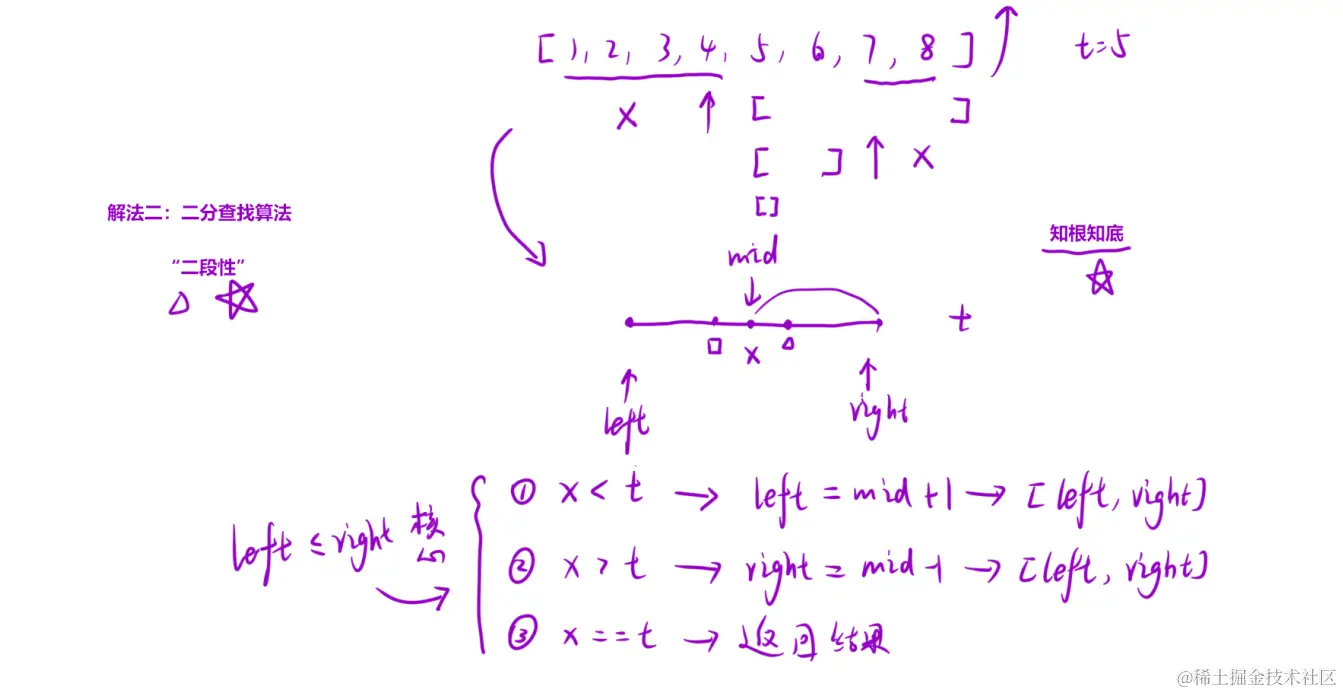 [1, 2, 3, 4, 5, 6, 7, 8] t=5
x [ ]
[ ] x
解法二：二分查找算法
[]
“二段性”
知根知底
mid
t
x
left right
left ≤ right 核心
① x < t → left = mid + 1 → [left, right]
② x > t → right = mid - 1 → [left, right]
③ x == t → 返回结果
@稀土掘金技术社区